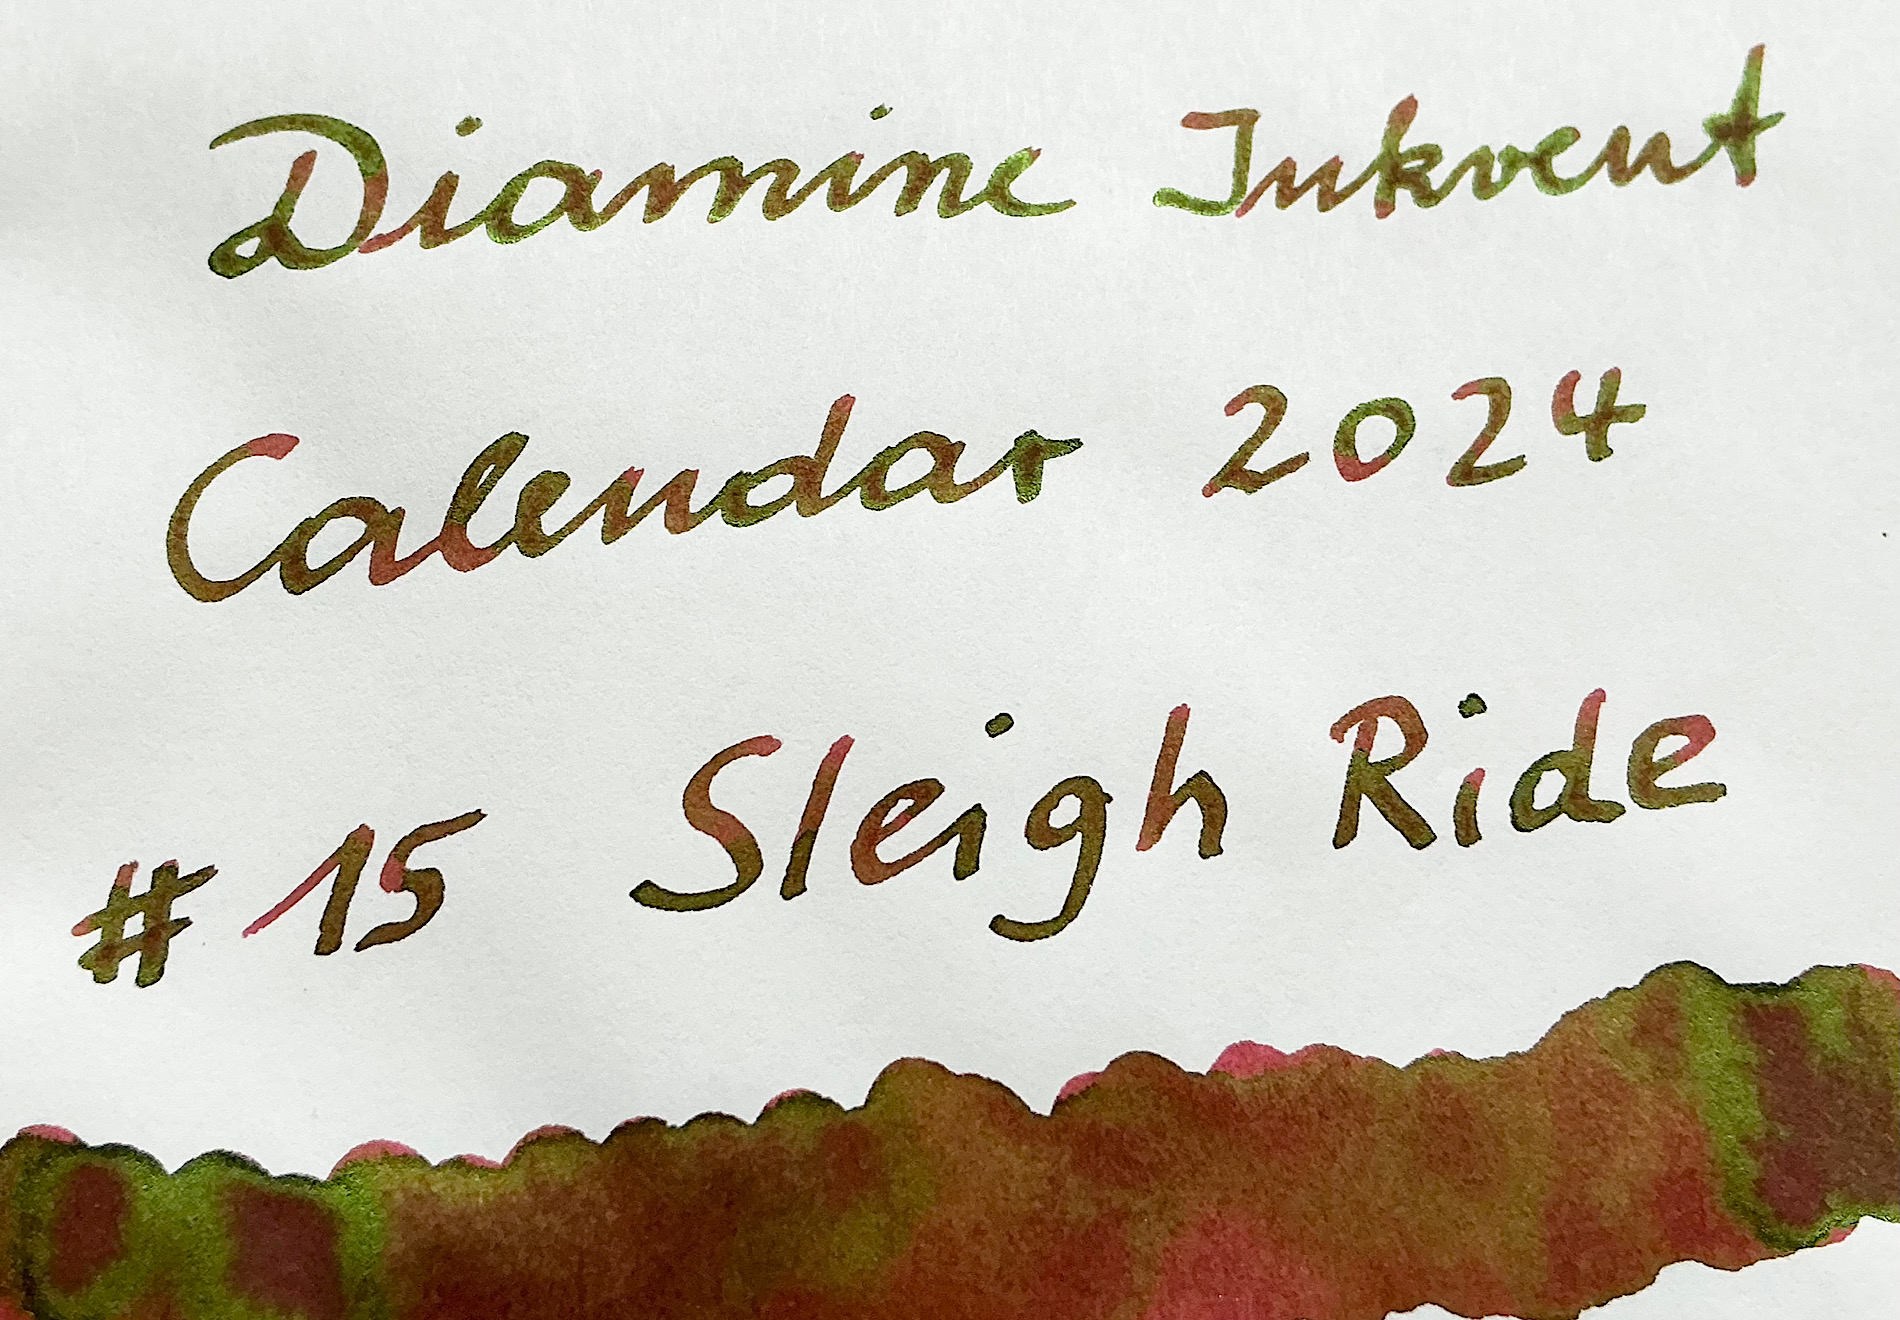 Diamine Inkvent
Calendar 2024
# 15 Sleigh Ride